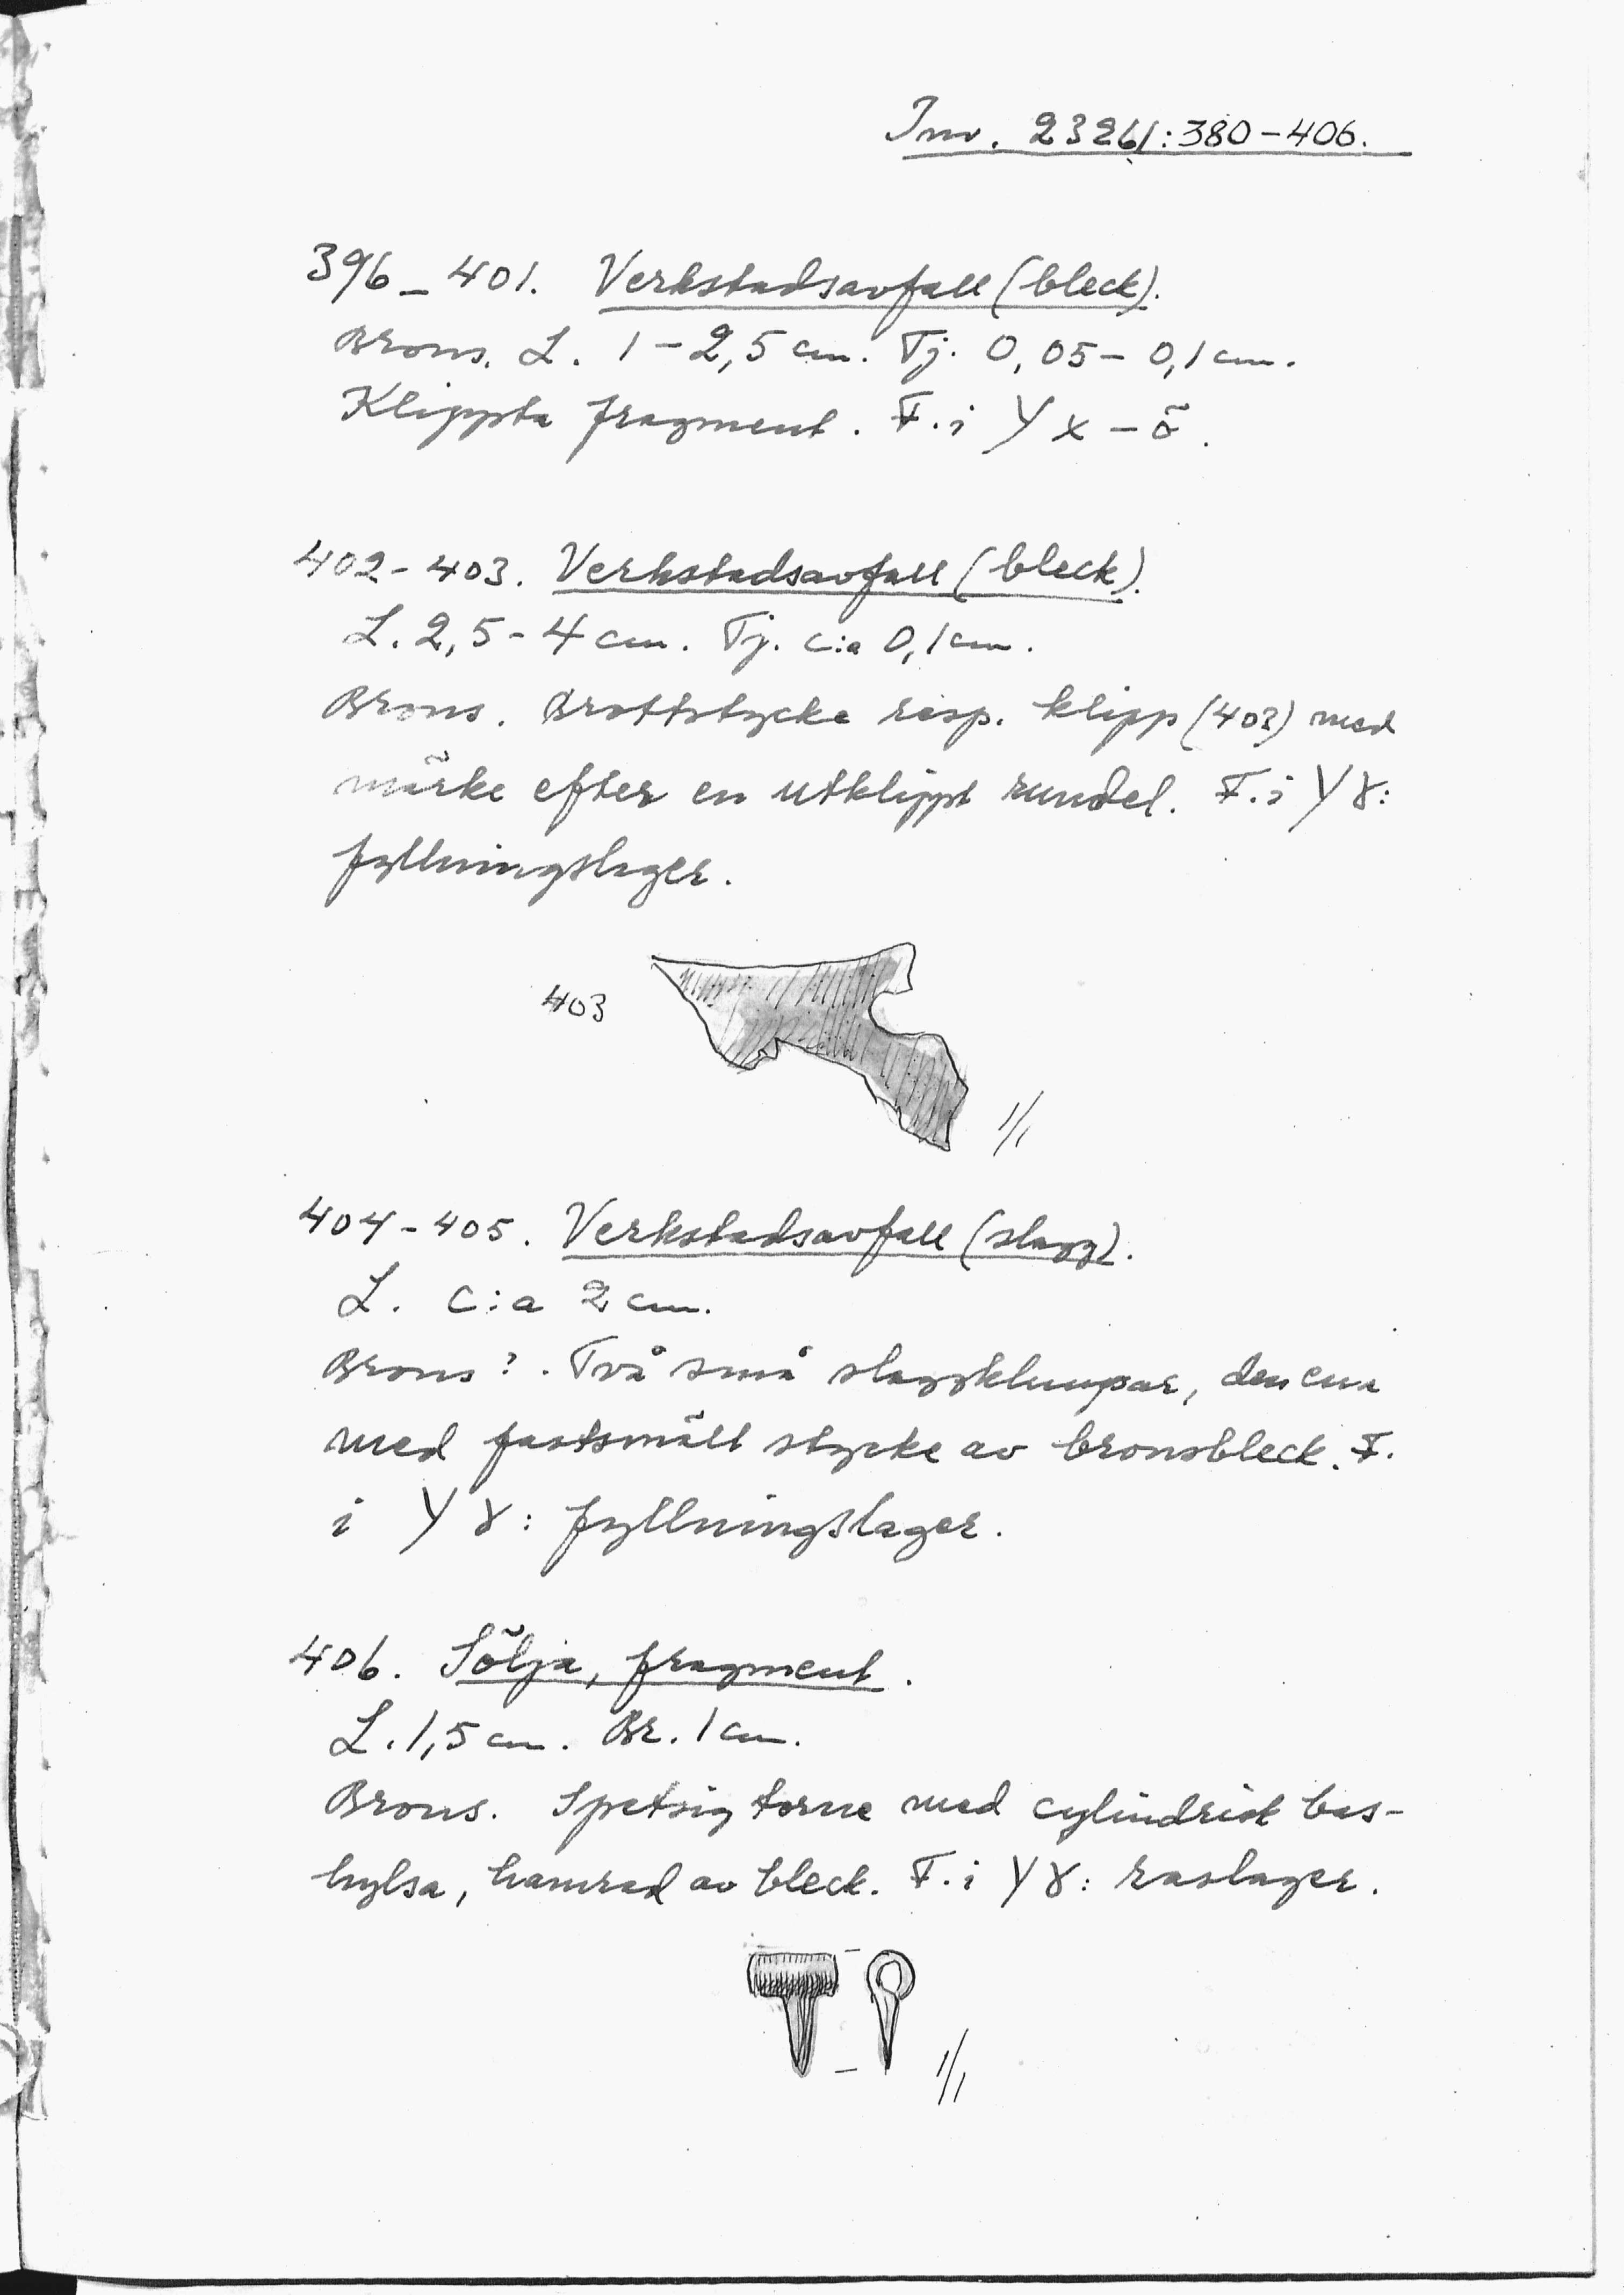 Inv. 23261:380-406.
396-401. Verkstadsavfall (bleck).
Brons. L. 1-2,5 cm. Tj. 0,05-0,1 cm.
Klippta fragment. F. i Y x - ö.
402-403. Verkstadsavfall (bleck).
L. 2,5-4 cm. Tj. c:a 0,1 cm.
Brons. Brottstycke resp. klipp (403) med
märke efter en utklippt rundel. F. i Y γ:
fyllningslager.
403
1/1
404-405. Verkstadsavfall (slagg).
L. c:a 2 cm.
Brons?. Två små slaggklumpar, den ena
med fastsmält stycke av bronsbleck. F.
i Y γ: fyllningslager.
406. Sölja, fragment.
L. 1,5 cm. Br. 1 cm.
Brons. Spetsig torne med cylindrisk bas-
hylsa, hamrad av bleck. F. i Y γ: raslager.
1/1